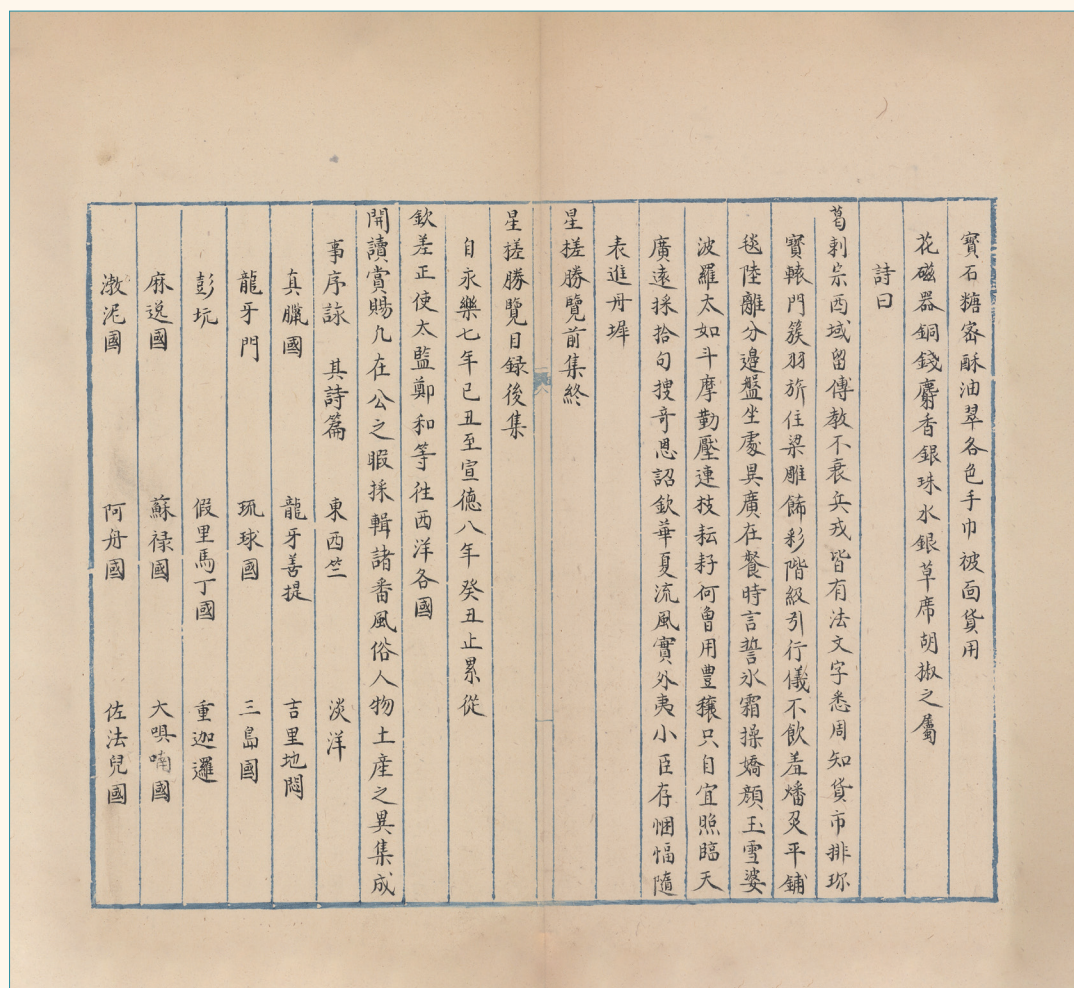 寳石糖宻酥油翠各色手巾被面貨用
花磁器銅錢麝香銀珠水銀草席胡椒之屬
詩曰
葛剌宗西域留傳教不衰兵戎皆有法文字悉周知貨市排珎
寳轅門簇羽旂住梁雕飾彩階級引行儀不飲羞燔炙平鋪
毯陸離分邉盤坐䖏異廣在餐時言誓氷霜操嬌顔玉雪婆
波羅太如斗摩勤壓連枝耘耔何曽用豐穰只自宜照臨天
廣遠採拾句搜竒恩詔欽華夏流風實外夷小臣存悃愊隨
表進丹墀
星搓勝覽前集終
星搓勝覽目録後集
自永樂七年己丑至宣德八年癸丑止累從
欽差正使太監鄭和等徃西洋各國
開讀賞賜凢在公之暇採輯諸番風俗人物土產之異集成
事序詠　其詩篇　東西竺　淡洋
真臘國　龍牙善提　吉里地悶
龍牙門　琉球國　三島國
彭坑　假里馬丁國　重迦邏
麻逸國　蘇禄國　大唄喃國
浡泥國　阿丹國　佐法兒國